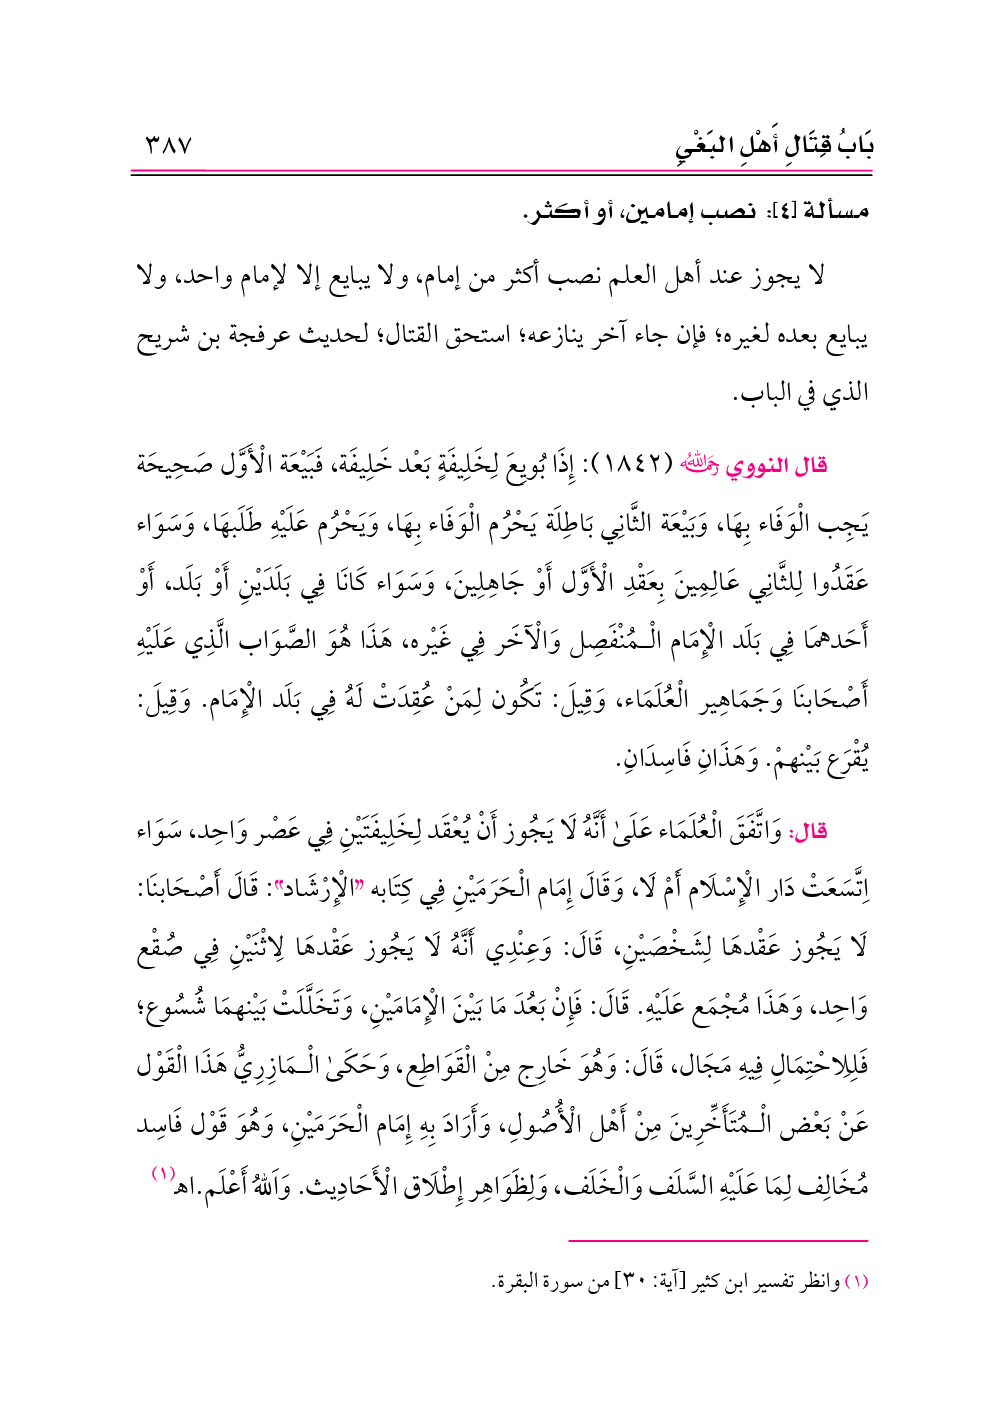 بَابُ قِتَالِ أَهْلِ البَغْيِ
٣٨٧
مسألة [٤]: نصب إمامين، أو أكثر.
لا يجوز عند أهل العلم نصب أكثر من إمام، ولا يبايع إلا لإمام واحد، ولا
يبايع بعده لغيره؛ فإن جاء آخر ينازعه؛ استحق القتال؛ لحديث عرفجة بن شريح
الذي في الباب.
قال النووي رَحِمَهُ اللهُ (١٨٤٢): إِذَا بُويِعَ لِخَلِيفَةٍ بَعْد خَلِيفَة، فَبَيْعَة الْأَوَّل صَحِيحَة
يَجِب الْوَفَاء بِهَا، وَبَيْعَة الثَّانِي بَاطِلَة يَحْرُم الْوَفَاء بِهَا، وَيَحْرُم عَلَيْهِ طَلَبهَا، وَسَوَاء
عَقَدُوا لِلثَّانِي عَالِمِينَ بِعَقْدِ الْأَوَّل أَوْ جَاهِلِينَ، وَسَوَاء كَانَا فِي بَلَدَيْنِ أَوْ بَلَد، أَوْ
أَحَدهمَا فِي بَلَد الْإِمَام الْـمُنْفَصِل وَالْآخَر فِي غَيْره، هَذَا هُوَ الصَّوَاب الَّذِي عَلَيْهِ
أَصْحَابنَا وَجَمَاهِير الْعُلَمَاء، وَقِيلَ: تَكُون لِمَنْ عُقِدَتْ لَهُ فِي بَلَد الْإِمَام. وَقِيلَ:
يُقْرَع بَيْنهمْ. وَهَذَانِ فَاسِدَانِ.
قال: وَاتَّفَقَ الْعُلَمَاء عَلَىٰ أَنَّهُ لَا يَجُوز أَنْ يُعْقَد لِخَلِيفَتَيْنِ فِي عَصْر وَاحِد، سَوَاء
اِتَّسَعَتْ دَار الْإِسْلَام أَمْ لَا، وَقَالَ إِمَام الْحَرَمَيْنِ فِي كِتَابه "الْإِرْشَاد": قَالَ أَصْحَابنَا:
لَا يَجُوز عَقْدهَا لِشَخْصَيْنِ، قَالَ: وَعِنْدِي أَنَّهُ لَا يَجُوز عَقْدهَا لِاثْنَيْنِ فِي صُقْع
وَاحِد، وَهَذَا مُجْمَع عَلَيْهِ. قَالَ: فَإِنْ بَعُدَ مَا بَيْنَ الْإِمَامَيْنِ، وَتَخَلَّلَتْ بَيْنهمَا شُسُوع؛
فَلِلِاحْتِمَالِ فِيهِ مَجَال، قَالَ: وَهُوَ خَارِج مِنْ الْقَوَاطِع، وَحَكَىٰ الْـمَازِرِيُّ هَذَا الْقَوْل
عَنْ بَعْض الْـمُتَأَخِّرِينَ مِنْ أَهْل الْأُصُولِ، وَأَرَادَ بِهِ إِمَام الْحَرَمَيْنِ، وَهُوَ قَوْل فَاسِد
مُخَالِف لِمَا عَلَيْهِ السَّلَف وَالْخَلَف، وَلِظَوَاهِر إِطْلَاق الْأَحَادِيث. وَاَللهُ أَعْلَم.اهـ(١)
(١) وانظر تفسير ابن كثير [آية: ٣٠] من سورة البقرة.